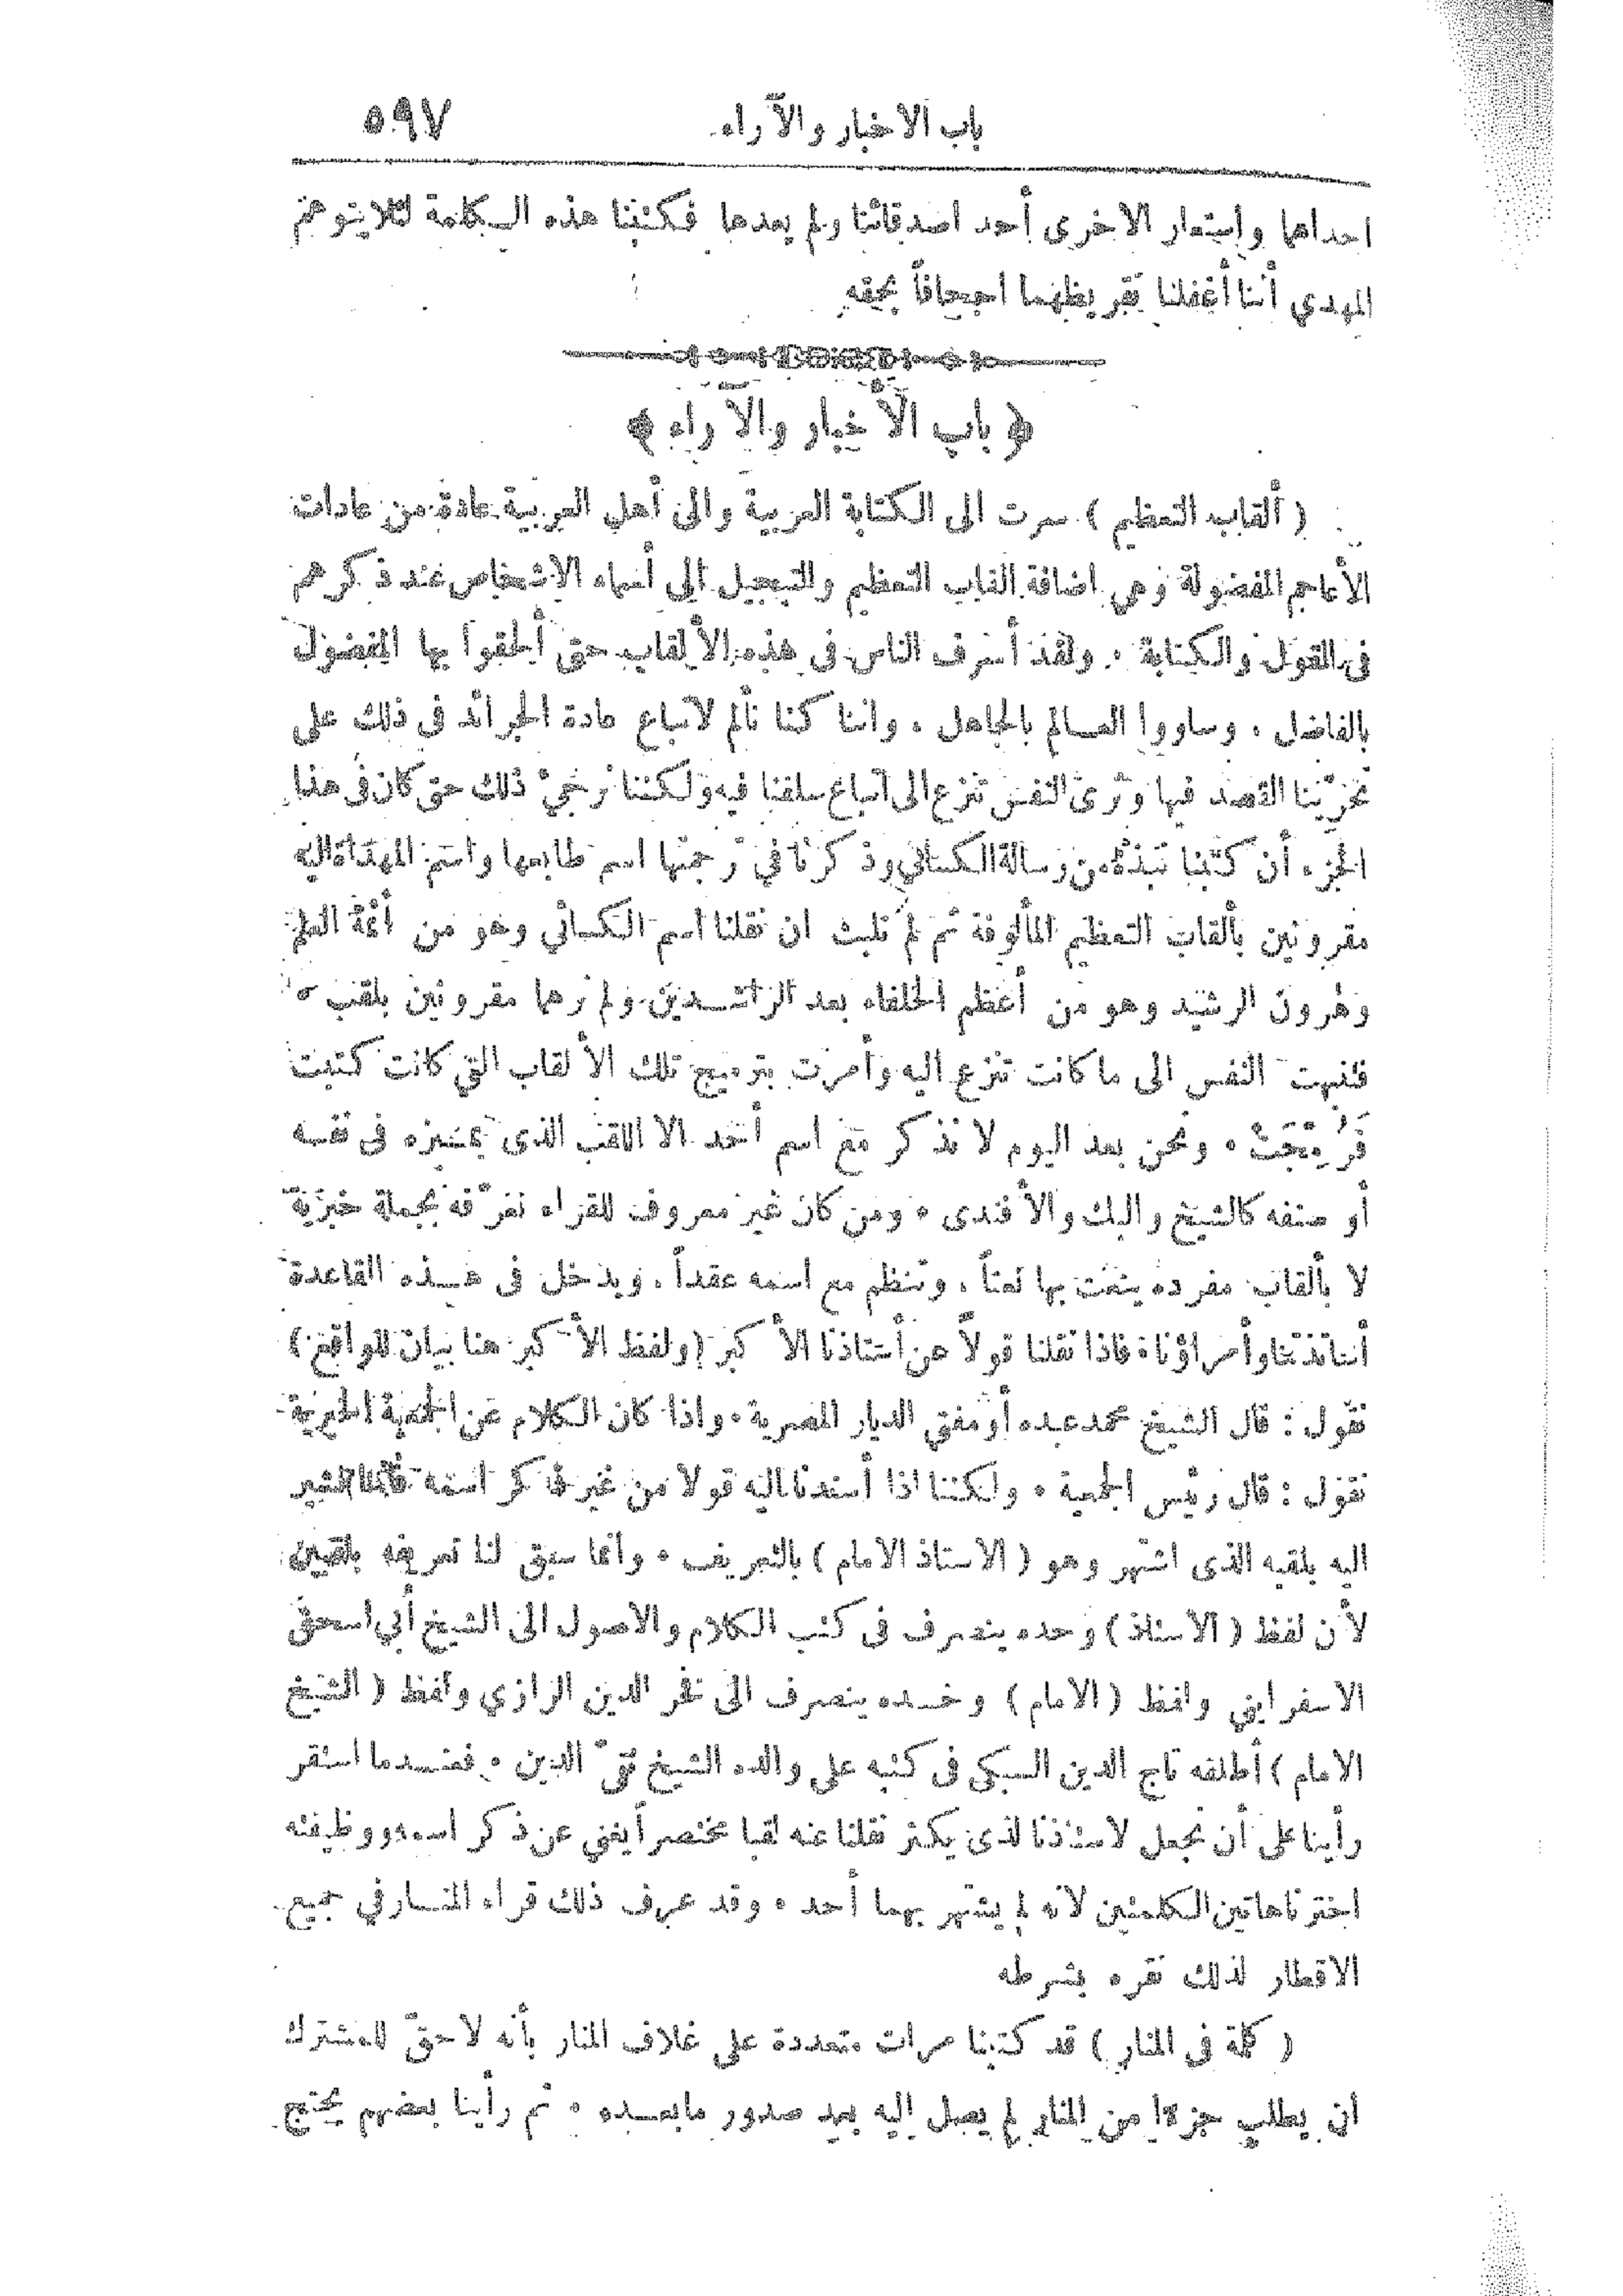 باب الاخبار والآراء ٥٩٧
احداهما واستعار الاخرى أحد اصدقائنا ولم يعدها فكتبنا هذه الكلمة لئلا يتوهم
المهدي أننا أغفلنا تقريظهما اجحافاً بحقه
﴿ باب الأخبار والآراء ﴾
( ألقاب التعظيم ) سرت الى الكتابة العربية والى أهل العربية عادة من عادات
الأعاجم المفضولة وهي اضافة القاب التعظيم والتبجيل الى أسماء الاشخاص عند ذكرهم
في القول والكتابة . ولقد أسرف الناس في هذه الألقاب حتى ألحقوا بها المفضول
بالفاضل . وساووا العالم بالجاهل . واننا كنا نألم لاتباع عادة الجرائد في ذلك على
تحرّينا القصد فيها ونرى النفس تنزع الى اتباع سلفنا فيه ولكننا نرجئ ذلك حتى كان في هذا
الجزء أن كتبنا نبذة من رسالة الكسائي وذكرنا في ترجمتها اسم طابعها واسم المهداة اليه
مقرونين بألقاب التعظيم المألوفة ثم لم نلبث ان نقلنا اسم الكسائي وهو من أئمة العلم
وهرون الرشيد وهو من أعظم الخلفاء بعد الراشدين ولم نرهما مقرونين بلقب .
فنبهت النفس الى ما كانت تنزع اليه وأمرت بترميج تلك الألقاب التي كانت كتبت
فَرُمِّجَتْ . ونحن بعد اليوم لا نذكر مع اسم أحد الا اللقب الذى يميزه في نفسه
أو صنفه كالشيخ والبك والأفندى . ومن كان غير معروف للقراء نعرّفه بجملة خبرية
لا بألقاب مفرده ينعت بها نعتاً . وتنظم مع اسمه عقداً . ويدخل في هذه القاعدة
أساتذتنا وأمراؤنا . فاذا نقلنا قولاً عن أستاذنا الأكبر (ولفظ الأكبر هنا بيان للواقع)
نقول : قال الشيخ محمد عبده أو مفتي الديار المصرية . واذا كان الكلام عن الجمعية الخيرية
نقول : قال رئيس الجمعية . ولكننا اذا أسندنا اليه قولا من غير ذكر اسمه فاننا نشير
اليه بلقبه الذى اشتهر وهو ( الاستاذ الامام ) بالتعريف . وانما سبق لنا تعريفه بلقبين
لأن لفظ ( الاستاذ ) وحده ينصرف في كتب الكلام والاصول الى الشيخ أبي اسحق
الاسفرايني ولفظ ( الامام ) وحده ينصرف الى فخر الدين الرازي ولفظ ( الشيخ
الامام ) أطلقه تاج الدين السبكي في كتبه على والده الشيخ تقيّ الدين . فعندما استقر
رأينا على أن نجعل لاستاذنا الذى يكثر نقلنا عنه لقبا مختصراً يغني عن ذكر اسمه ووظيفته
اخترنا هاتين الكلمتين لانه لم يشتهر بهما أحد . وقد عرف ذلك قراء المنار في جميع
الاقطار لذلك نقره بشرطه
( كلمة في المنار ) قد كتبنا مرات متعددة على غلاف المنار بأنه لا حقّ للمشترك
ان يطلب جزءا من المنار لم يصل اليه بعد صدور ما بعده . ثم رأينا بعضهم يحتج